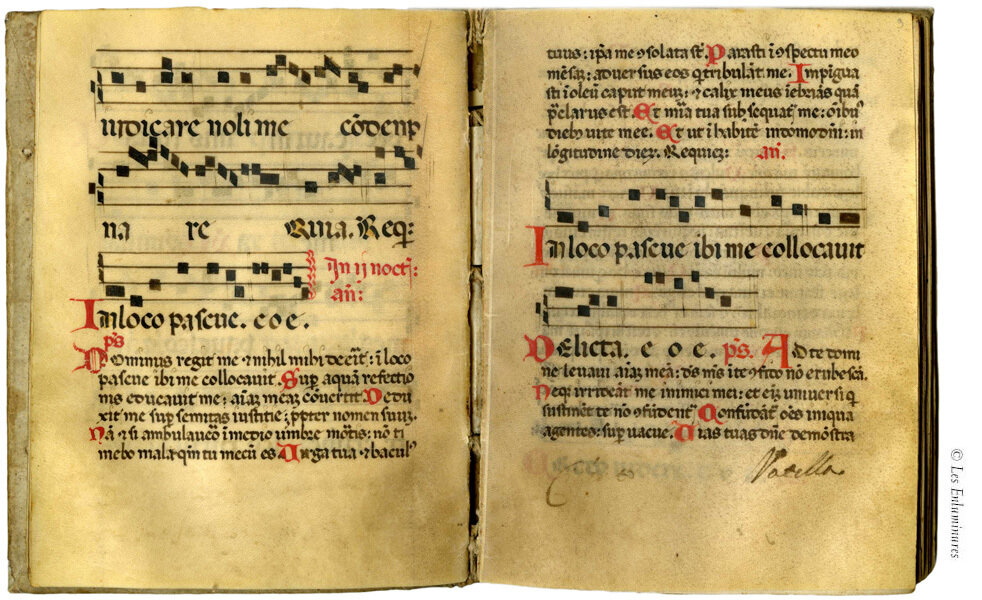 iudicare noli me cōdenp
na re Quia. Req̄:
In ij noct̄:
añ:
In loco pascue. e o e.
p̄s
Dominus regit me ⁊ nihil mihi deerit: ī loco
pascue ibi me collocauit. Sup̄ aquā refectio
nis educauit me: aīaȝ meaȝ cōuertit Dedu
xit me sup̄ semitas iustitie: p̄pter nomen suuȝ.
Nā ⁊ si ambulauero ī medio umbre mōtis: nō ti
mebo mala: qm̄ tu mecū es Uirga tua ⁊ bacul'
tuus: ip̄a me ɔsolata st̄. Parasti ī ɔspectu meo
mēsaȝ: aduersus eos q̄ tribulāt me. Impīgua
sti ī oleū caput meuȝ: ⁊ calix meus īebriās quā
p̄clarus est. Et mīa tua subsequat̄ me: oību'
dieb' uite mee. Et ut īhabitē in domo dn̄i: in
lōgitudine dierȝ. Requieȝ: añ.
In loco pascue ibi me collocauit
Delicta. e o e. p̄s. Ad te domi
ne leuaui aīaȝ meā: ds̄ ms̄ ī te ɔfido nō erubescā.
Neq̄ irrideāt me inimici mei: ⁊ eī uniuersi q̄
sustinēt te nō ɔfūdent̄ Confūdāt̄ oēs iniqua
agentes: sup̄ uacue. Uias tuas dn̄e demōstra
Vadella
© Les Enluminures